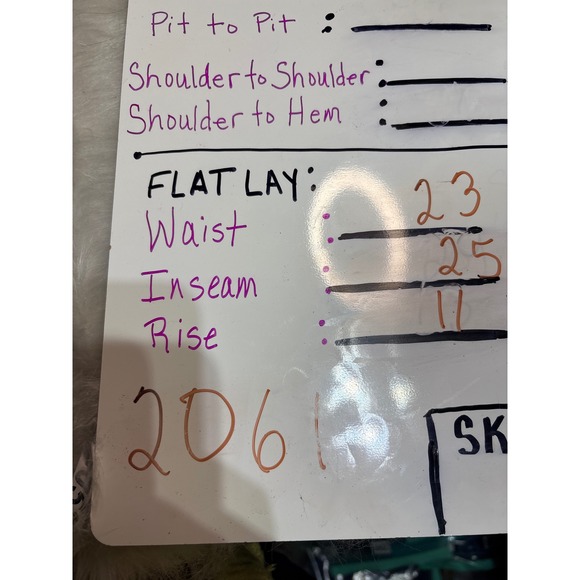 Pit to Pit :
Shoulder to Shoulder :
Shoulder to Hem :
FLAT LAY:
Waist : 23
Inseam : 25
Rise : 11
2061
SK